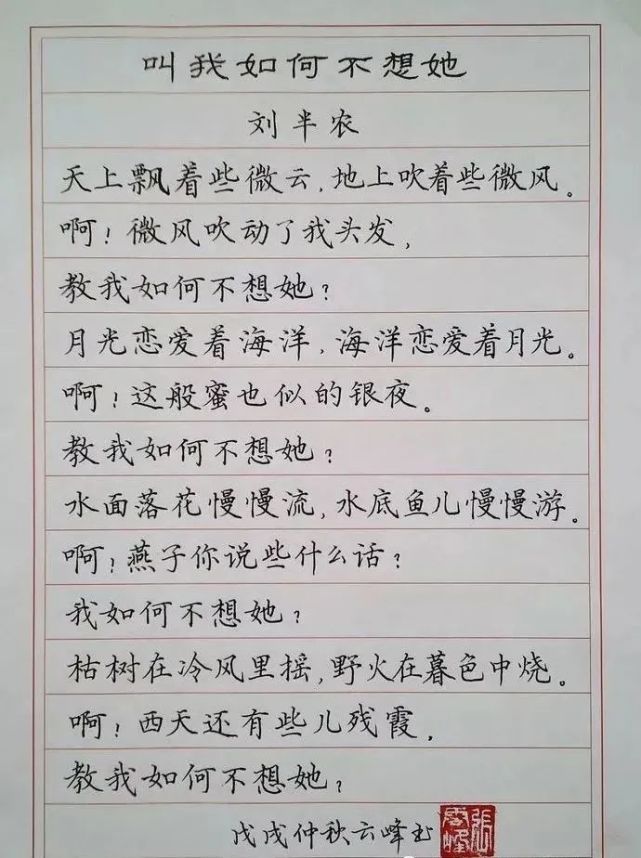 叫我如何不想她
刘半农
天上飘着些微云，地上吹着些微风。
啊！微风吹动了我头发，
教我如何不想她？
月光恋爱着海洋，海洋恋爱着月光。
啊！这般蜜也似的银夜。
教我如何不想她？
水面落花慢慢流，水底鱼儿慢慢游。
啊！燕子你说些什么话？
我如何不想她？
枯树在冷风里摇，野火在暮色中烧。
啊！西天还有些儿残霞，
教我如何不想她？
戊戌仲秋云峰书
张云峰